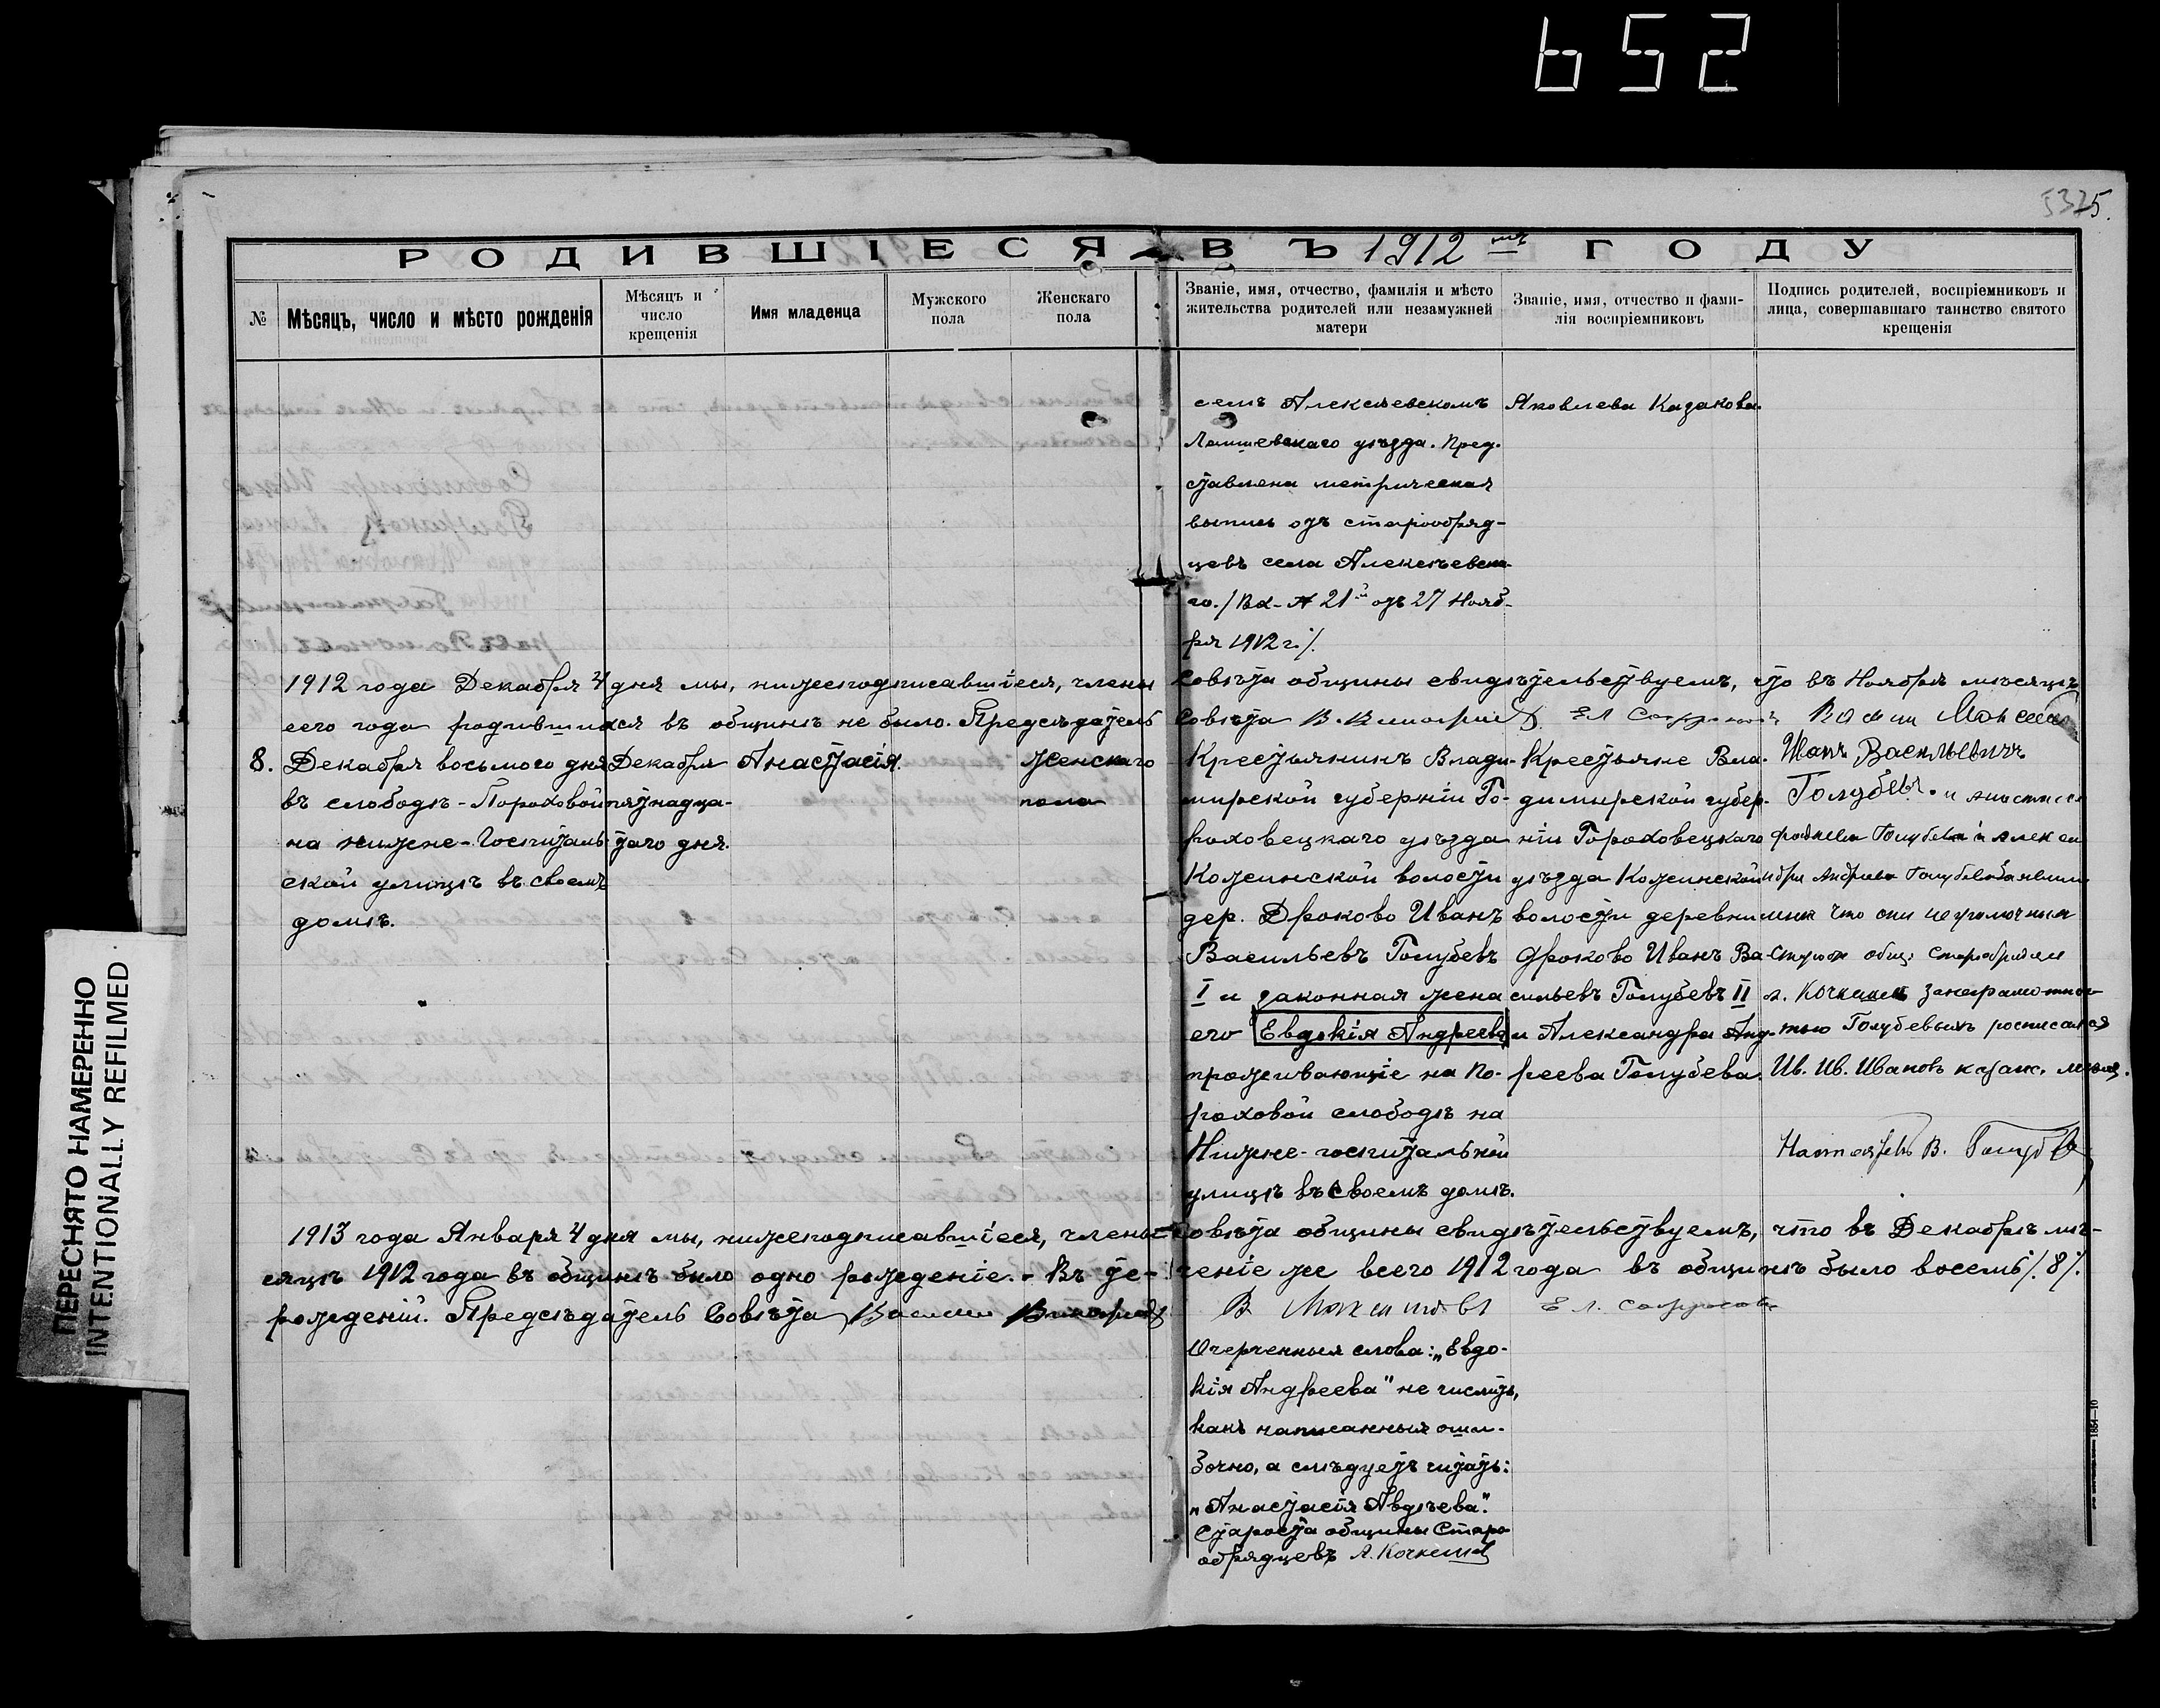 652
5325.
РОДИВШІЕСЯ ВЪ 1912 мъ ГОДУ
№
Мѣсяцъ, число и мѣсто рожденія
Мѣсяцъ и
число
крещенія
Имя младенца
Мужского
пола
Женскаго
пола
Званіе, имя, отчество, фамилія и мѣсто
жительства родителей или незамужней
матери
Званіе, имя, отчество и фами-
лія воспріемниковъ
Подпись родителей, воспріемниковъ и
лица, совершавшаго таинство святого
крещенія
селѣ Алексѣевскомъ
Лаишевскаго уѣзда. Пред-
ставлена метрическая
выпись отъ старообряд-
цевъ села Алексѣевска-
го. /Вх. № 21й отъ 27 Нояб-
ря 1912 г./.
Яковлева Казакова.
1912 года Декабря 4 дня мы, нижеподписавшіеся, члены Совѣта общины свидѣтельствуемъ, что въ Ноябрѣ мѣсяцѣ
сего года родившихся въ общинѣ не было. Предсѣдатель Совѣта В.
8.
Декабря восьмого дня
въ слободѣ - Пороховой
на Нижне-Госпиталь-
ской улицѣ въ своемъ
домѣ.
Декабря
пятнадца-
таго дня.
Анастасія.
Женскаго
пола
Крестьянинъ Влади-
мирской губерніи Го-
роховецкаго уѣзда
Кожинской волости
дер. Дроково Иванъ
Васильевъ Голубевъ
I и законная жена
его Евдокія Андреева
проживающіе на По-
роховой слободѣ на
Нижне-госпитальной
улицѣ въ своемъ домѣ.
Крестьяне Вла-
димирской губер-
ніи Гороховецкаго
уѣзда Кожинской
волости деревни
Дроково Иванъ Ва-
сильевъ Голубевъ II
и Александра Анд-
реева Голубева.
Иванъ Васильевичъ
Голубевъ. и
Голубева и Алексан
дра Андреева Голубева
что они
общ. старобряд
А. Кочкинъ За неграмотно-
тью Голубевыхъ росписался
Ив. Ив. Ивановъ
Настоятель В. Голубев
1913 года Января 4 дня мы, нижеподписавшіеся, члены Совѣта общины свидѣтельствуемъ, что въ Декабрѣ мѣ-
сяцѣ 1912 года въ общинѣ было одно рожденіе. - Въ те- ченіе же всего 1912 года въ общинѣ было восемь /8/.
рожденій. Предсѣдатель Совѣта
Очерченныя слова: „Евдо-
кія Андреева" не числить,
какъ написанныя оши-
бочно, а слѣдуетъ читать:
„Анастасія Авдѣева".
Староста общины Старо
обрядцевъ А. Кочкинъ
ПЕРЕСНЯТО НАМЕРЕННО
INTENTIONALLY REFILMED